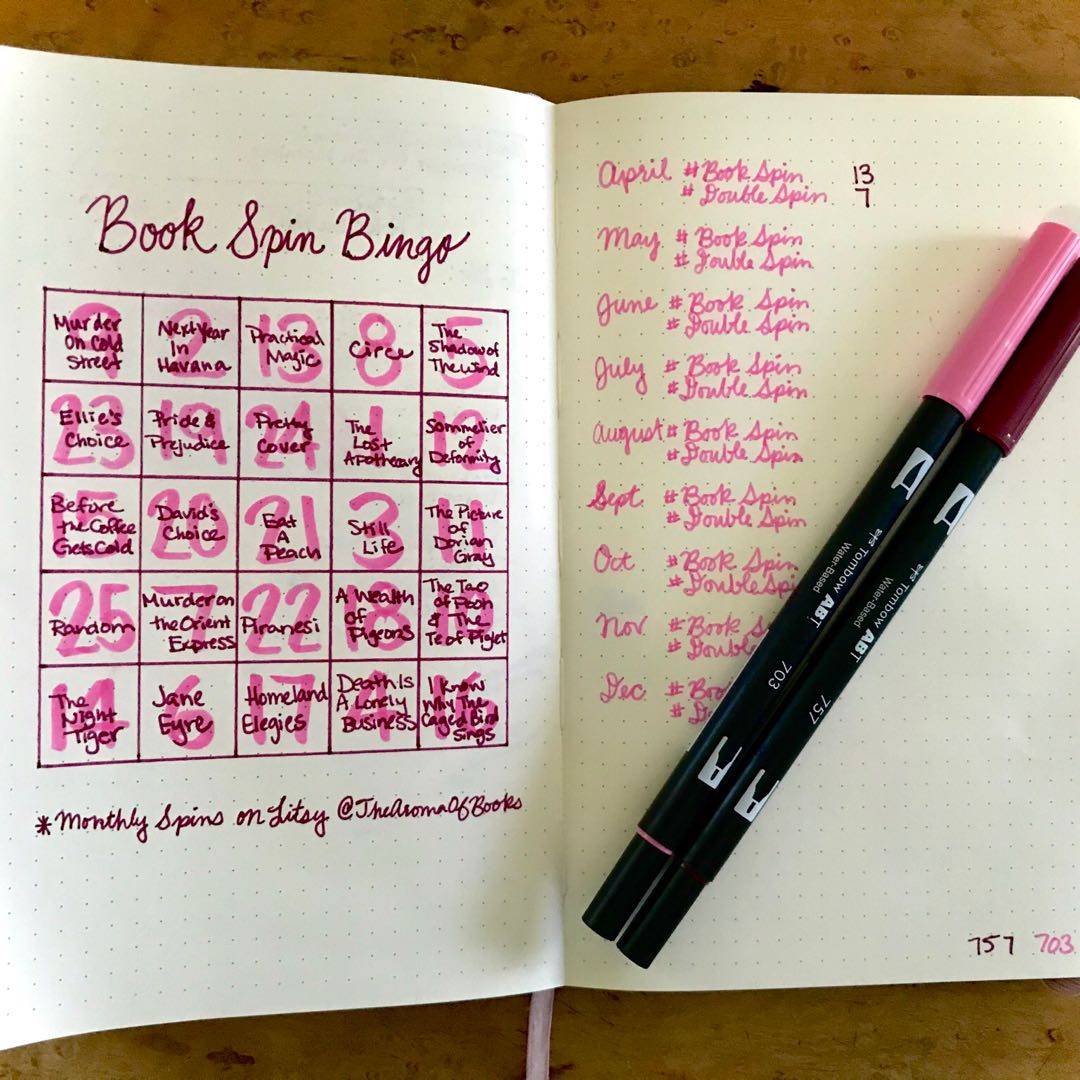 Book Spin Bingo
9
Murder
On Cold
Street
2
Next Year
In
Havana
13
Practical
Magic
8
Circe
5
The
Shadow of
The Wind
23
Ellie's
Choice
19
Pride &
Prejudice
24
Pretty
Cover
1
The
Lost
Apothecary
12
Sommelier
of
Deformity
15
Before
the Coffee
Gets Cold
20
David's
Choice
21
Eat
A
Peach
3
Still
Life
11
The Picture
of
Dorian
Gray
25
Random
7
Murder on
the Orient
Express
22
Piranesi
18
A Wealth
of
Pigeons
10
The Tao
of Pooh
& The
Te of Piglet
14
The
Night
Tiger
6
Jane
Eyre
17
Homeland
Elegies
4
Death Is
A Lonely
Business
16
I Know
Why The
Caged Bird
Sings
*Monthly Spins on Litsy @TheAromaOfBooks
April #Book Spin 13
#Double Spin 7
May #Book Spin
#Double Spin
June #Book Spin
#Double Spin
July #Book Spin
#Double Spin
August #Book Spin
#Double Spin
Sept #Book Spin
#Double Spin
Oct #Book Spin
#Double Spin
Nov #Book S
#Double
Dec #Boo
#D
Tombow ABT
Water-Based
703
Tombow ABT
Water-Based
757
757 703